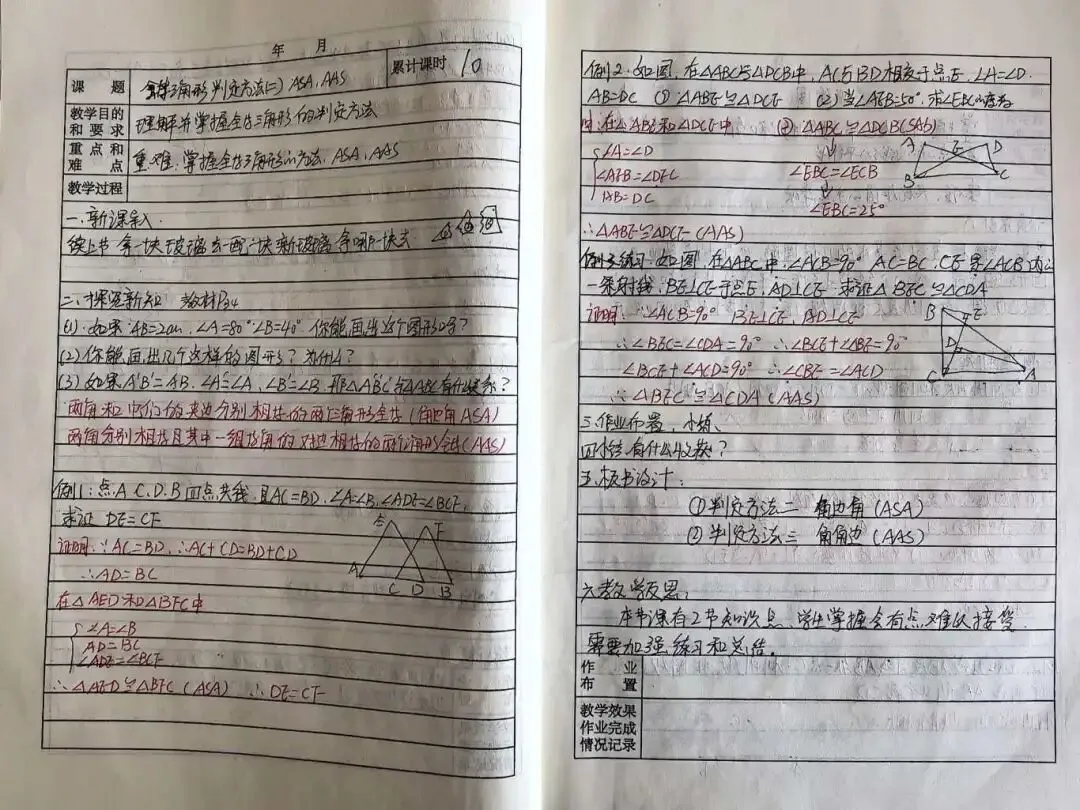 年 月
课题 全等三角形判定方法(二) ASA, AAS 累计课时 10
教学目的和要求 理解并掌握全等三角形的判定方法
重点和难点 重难: 掌握全等三角形的方法, ASA, AAS
教学过程
一.新课导入
续上节 拿一块玻璃去配一块新玻璃, 拿哪一块去
二.探究新知 教材P34
(1) 如果AB=2cm, ∠A=80° ∠B=40° 你能画出这个图形吗?
(2) 你能画出几个这样的图形? 为什么?
(3) 如果A'B'=AB, ∠A'=∠A, ∠B'=∠B, 那△A'B'C'与△ABC有什么关系?
两角和它们的夹边分别相等的两个三角形全等 (角边角ASA)
两角分别相等且其中一组等角的对边相等的两个三角形全等(AAS)
例1: 点A、C、D、B四点共线, 且AC=BD, ∠A=∠B, ∠ADE=∠BCF,
求证 DE=CF
证明: ∵AC=BD, ∴AC+CD=BD+CD
∴AD=BC
在△AED和△BFC中
∠A=∠B
AD=BC
∠ADE=∠BCF
∴△AED≌△BFC (ASA) ∴DE=CF
E F
A C D B
例2. 如图, 在△ABC与△DCB中, AC与BD相交于点E, ∠A=∠D,
AB=DC (1) △ABE≌△DCE (2) 当∠AEB=50°, 求∠EBC的度数
在△ABE和△DCE中 ② △ABC≌△DCB(SAS)
∠A=∠D
∠AEB=∠DEC ∠EBC=∠ECB
AB=DC ∠EBC=25°
∴△ABE≌△DCE (AAS)
A E D
B C
例3练习. 如图, 在△ABC中, ∠ACB=90° AC=BC, CE是∠ACB内的
一条射线, BE⊥CE于点E, AD⊥CE 求证△BEC≌△CDA
证明: ∵∠ACB=90° BE⊥CE, AD⊥CE
∴∠BEC=∠CDA=90° ∴∠BCE+∠CBE=90°
∠BCE+∠ACD=90° ∴∠CBE=∠ACD
∴△BEC≌△CDA (AAS)
B E
D
C A
三.作业布置, 小练、
四小结, 有什么收获?
五.板书设计:
①判定方法二 角边角 (ASA)
②判定方法三 角角边 (AAS)
六教学反思:
本节课有2节知识点, 学生掌握会有点难以接受,
需要加强练习和总结。
作业布置
教学效果
作业完成
情况记录